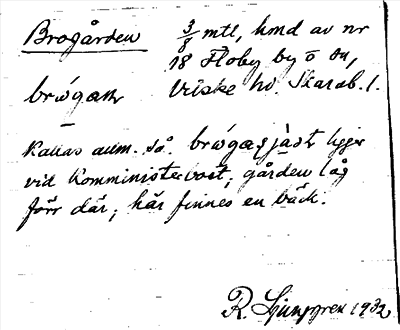 Brogården 3/8 mtl, hmd av nr
18 Floby by o sn,
brẃgaɳ Vilske hd. Skarab. l.
Kallas allm. så. brẃgasjàst ligger
vid Komministerbost; gården låg
förr där; här finnes en bäck.
R. Ljunggren 1932